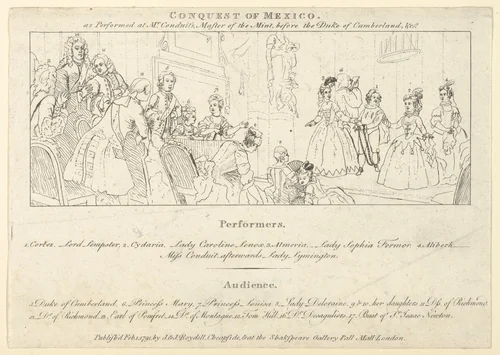 CONQUEST OF MEXICO.
as Performed at Mr. Conduits, Master of the Mint, before the Duke of Cumberland, &c.
Performers.
1. Cortez. Lord Lempster, 2. Cydaria, Lady Caroline Lenox, 3. Almeria, Lady Sophia Fermor, 4. Alibech
Miss Conduit, afterwards Lady Lymington.
Audience.
5. Duke of Cumberland, 6. Princess Mary, 7. Princess Louisa, 8. Lady Deloraine, 9 & 10. her daughters, 11. Dss. of Richmond,
12. D. of Richmond, 13. Earl of Pomfret, 14. D. of Montague, 15. Tom Hill, 16. Dr. Desaguliers, 17. Bust of Sr. Isaac Newton.
Publish'd Feb. 1, 1791, by J. & J. Boydell, Cheapside, & at the Shakspeare Gallery Pall Mall London.